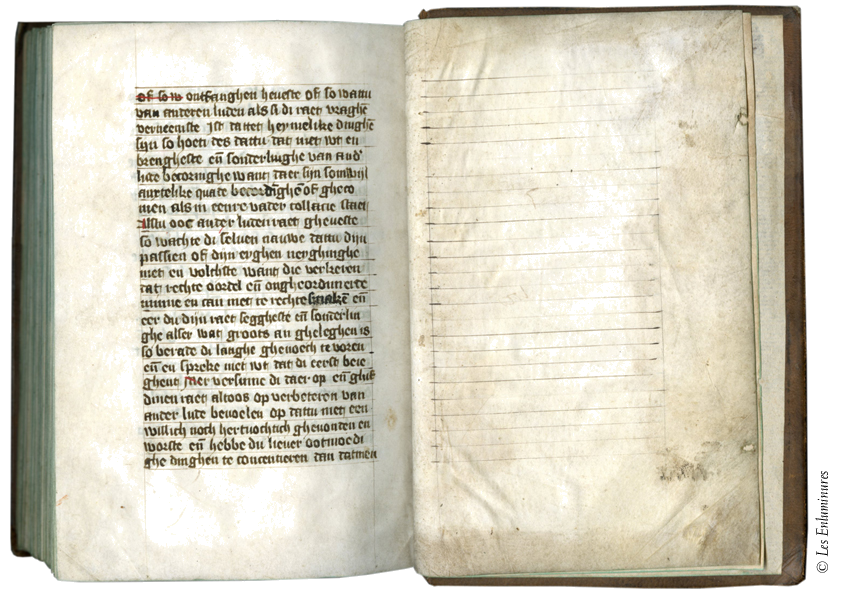 of so w ontfanghen heueste of so wattu
van anderen luden als si di raet vraghē
verneemste Ist dattet heymelike dinghē
sijn so hoeti des dattu dat niet wt en
brengheste eñ sonderlinghe van and'
lude becoringhe want daer sijn somwijl
aurtelike quade becoringhē of gheco
men als in eenre vader collacie staet
Alstu ooc ander luden raet gheueste
so wachte di seluen nauwe dattu dijn
passien of dijn erghen neyghinghe
niet en volchste want die verkeren
dat rechte oordel eñ ongheordineerde
minne en can niet te rechte smakē eñ
eer du dijn raet seggheste eñ sonderlin
ghe alser wat groots an gheleghen is
so berade di langhe ghenoech te voren
eñ en spreke niet wt dat di eerst beie
ghent mer versinne di daer op eñ ghif
dinen raet altoos op verbeteren van
ander lude beuoelen op dattu niet een
willich noch hertnochtich gheuonden en
worste eñ hebbe du lieuer ootmoedi
ghe dinghen te concentieren dan datmen
© Les Enluminures